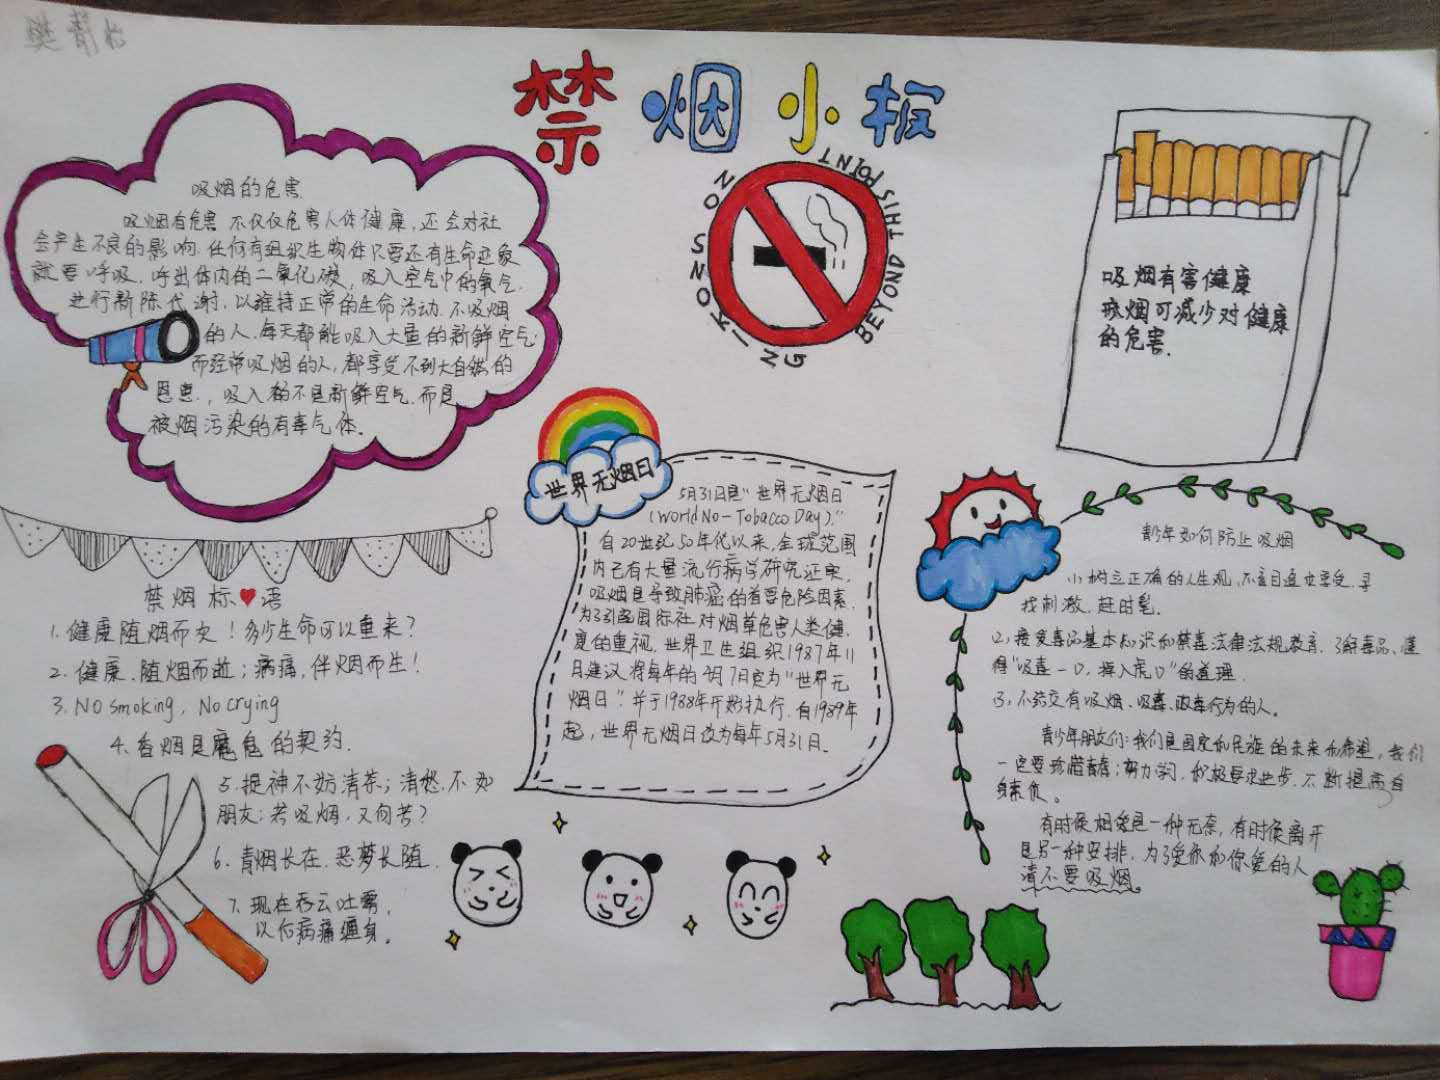 樊静怡
禁烟小报
NO SNOKING BEYOND THIS POINT
吸烟的危害
吸烟有危害 不仅仅危害人体健康，还会对社
会产生不良的影响.任何有组织生物体只要还有生命迹象
就要呼吸，呼出体内的二氧化碳，吸入空气中的氧气.
进行新陈代谢，以维持正常的生命活动.不吸烟
的人，每天都能吸入大量的新鲜空气；
而经常吸烟的人，都享受不到大自然的
恩惠，吸入的不是新鲜空气.而是
被烟污染的有毒气体。
吸烟有害健康
戒烟可减少对健康
的危害.
世界无烟日
5月31日是“世界无烟日
(World No-Tobacco Day).”
自20世纪50年代以来，全球范围
内已有大量流行病学研究证实，
吸烟是导致肺癌的首要危险因素.
为了引起国际社对烟草危害人类健
康的重视.世界卫生组织1987年11
日建议将每年的4月7日定为“世界无
烟日”.并于1988年开始执行.自1989年
起，世界无烟日改为每年5月31日.
禁烟标语
1.健康随烟而灾！多少生命可以重来？
2.健康.随烟而逝；病痛，伴烟而生！
3.No smoking, No crying
4.香烟是魔鬼的契约.
5.提神不妨清茶；清愁.不如
朋友；若吸烟，又何苦？
6.青烟长在.恶梦长随.
7.现在吞云吐雾，
以后病痛缠身。
青少年如何防止吸烟
树立正确的人生观，不盲目追求享受.寻
找刺激.赶时髦.
(2)，接受毒品基本知识和禁毒法律法规教育.了解毒品、懂
得“吸毒一口，掉入虎口”的道理.
(3)，不结交有吸烟、吸毒、贩毒行为的人。
青少年朋友们：我们是国家和民族的未来和希望，我们
一定要珍惜青春；努力学习.积极要求进步.不断提高自
身素食。
有时候相爱是一种无奈，有时候离开
是另一种安排，为了爱你和你爱的人
请不要吸烟